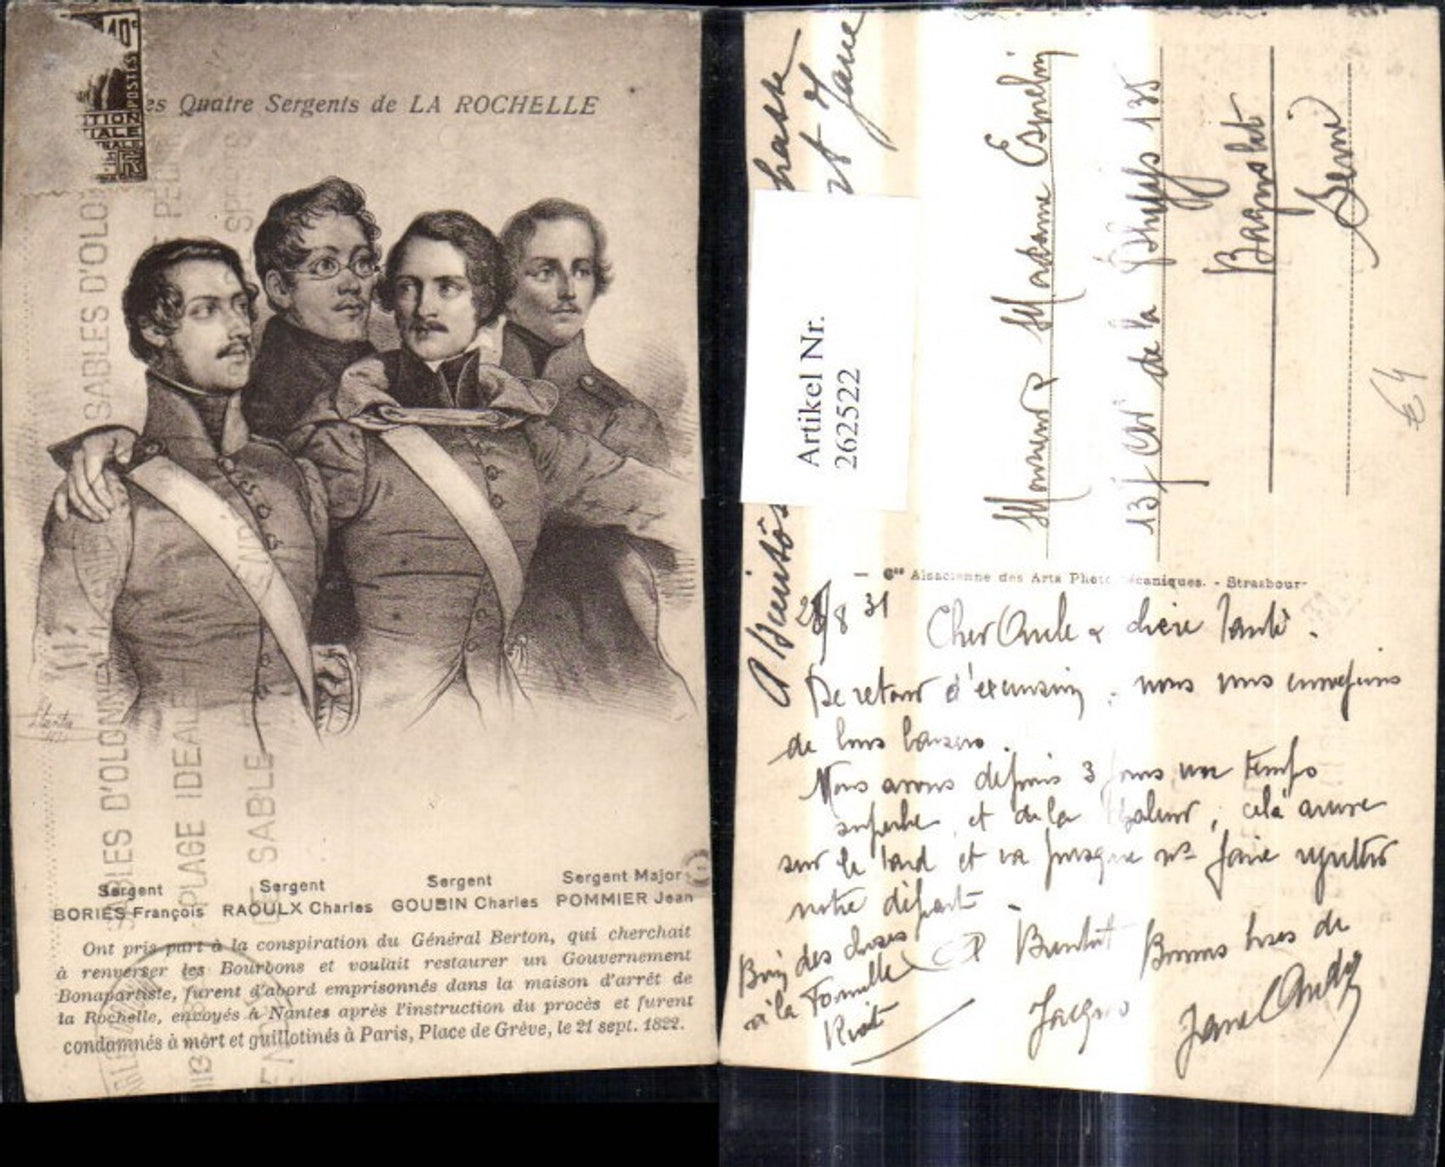 10c
POSTES
es Quatre Sergents de LA ROCHELLE
SABLES D'OLONNE
PLAGE IDEALE
DE SABLE
Sergent
BORIES François
Sergent
RAOULX Charles
Sergent
GOUBIN Charles
Sergent Major
POMMIER Jean
Ont pris part à la conspiration du Général Berton, qui cherchait
à renverser les Bourbons et voulait restaurer un Gouvernement
Bonapartiste, furent d'abord emprisonnés dans la maison d'arrêt de
la Rochelle, envoyés à Nantes après l'instruction du procès et furent
condamnés à mort et guillotinés à Paris, Place de Grève, le 21 sept. 1822.
Artikel Nr.
262522
Monsieur & Madame
135 de la Dhuys 135
Bagnolet
Seine
€4
Cie Alsacienne des Arts Photomécaniques. - Strasbourg
8 31
Cher Oncle & chère Tante.
De retour d'excursion, nous vous envoyons
de bons baisers.
Nous avons depuis 3 jours un temps
superbe et de la chaleur, celà arrive
sur le tard et va presque ns faire regretter
notre départ.
Bien des choses
à la Famille
A Bientôt Bonnes bises de
Jacques
Jane
A Bientôt
et Jane